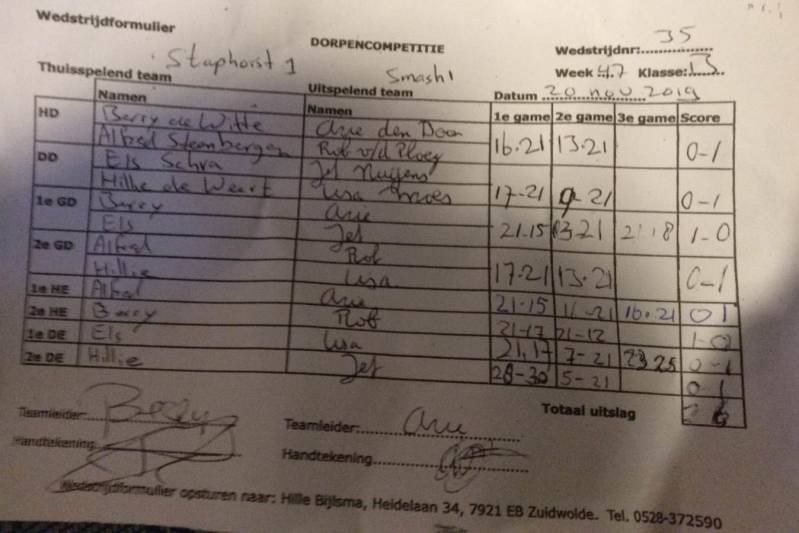 Wedstrijdformulier
DORPENCOMPETITIE
Wedstrijdnr: 35
Thuisspelend team Staphorst 1
Uitspelend team Smash 1
Week 47 Klasse: 3
Datum 20 nov 2019
Namen Namen 1e game 2e game 3e game Score
HD Berry de Witte Arie den Doon
Alfred Steenbergen Rob v/d Ploeg 16-21 13-21 0-1
DD Els Schra Jet Nuijens
Hillie de Weert Lisa 17-21 9-21 0-1
1e GD Berry Arie
Els Jet 21-15 13-21 21-18 1-0
2e GD Alfred Rob
Hillie Lisa 17-21 13-21 0-1
1e HE Alfred Arie 21-15 -21 16-21 0 1
2e HE Berry Rob 21-17 21-12 1-0
1e DE Els Lisa 21-17 7-21 23 25 0-1
2e DE Hillie Jet 28-30 5-21 0-1
Totaal uitslag 2 6
Teamleider: Berry
Teamleider: Arie
Handtekening
Handtekening
Wedstrijdformulier opsturen naar: Hille Bijlsma, Heidelaan 34, 7921 EB Zuidwolde. Tel. 0528-372590